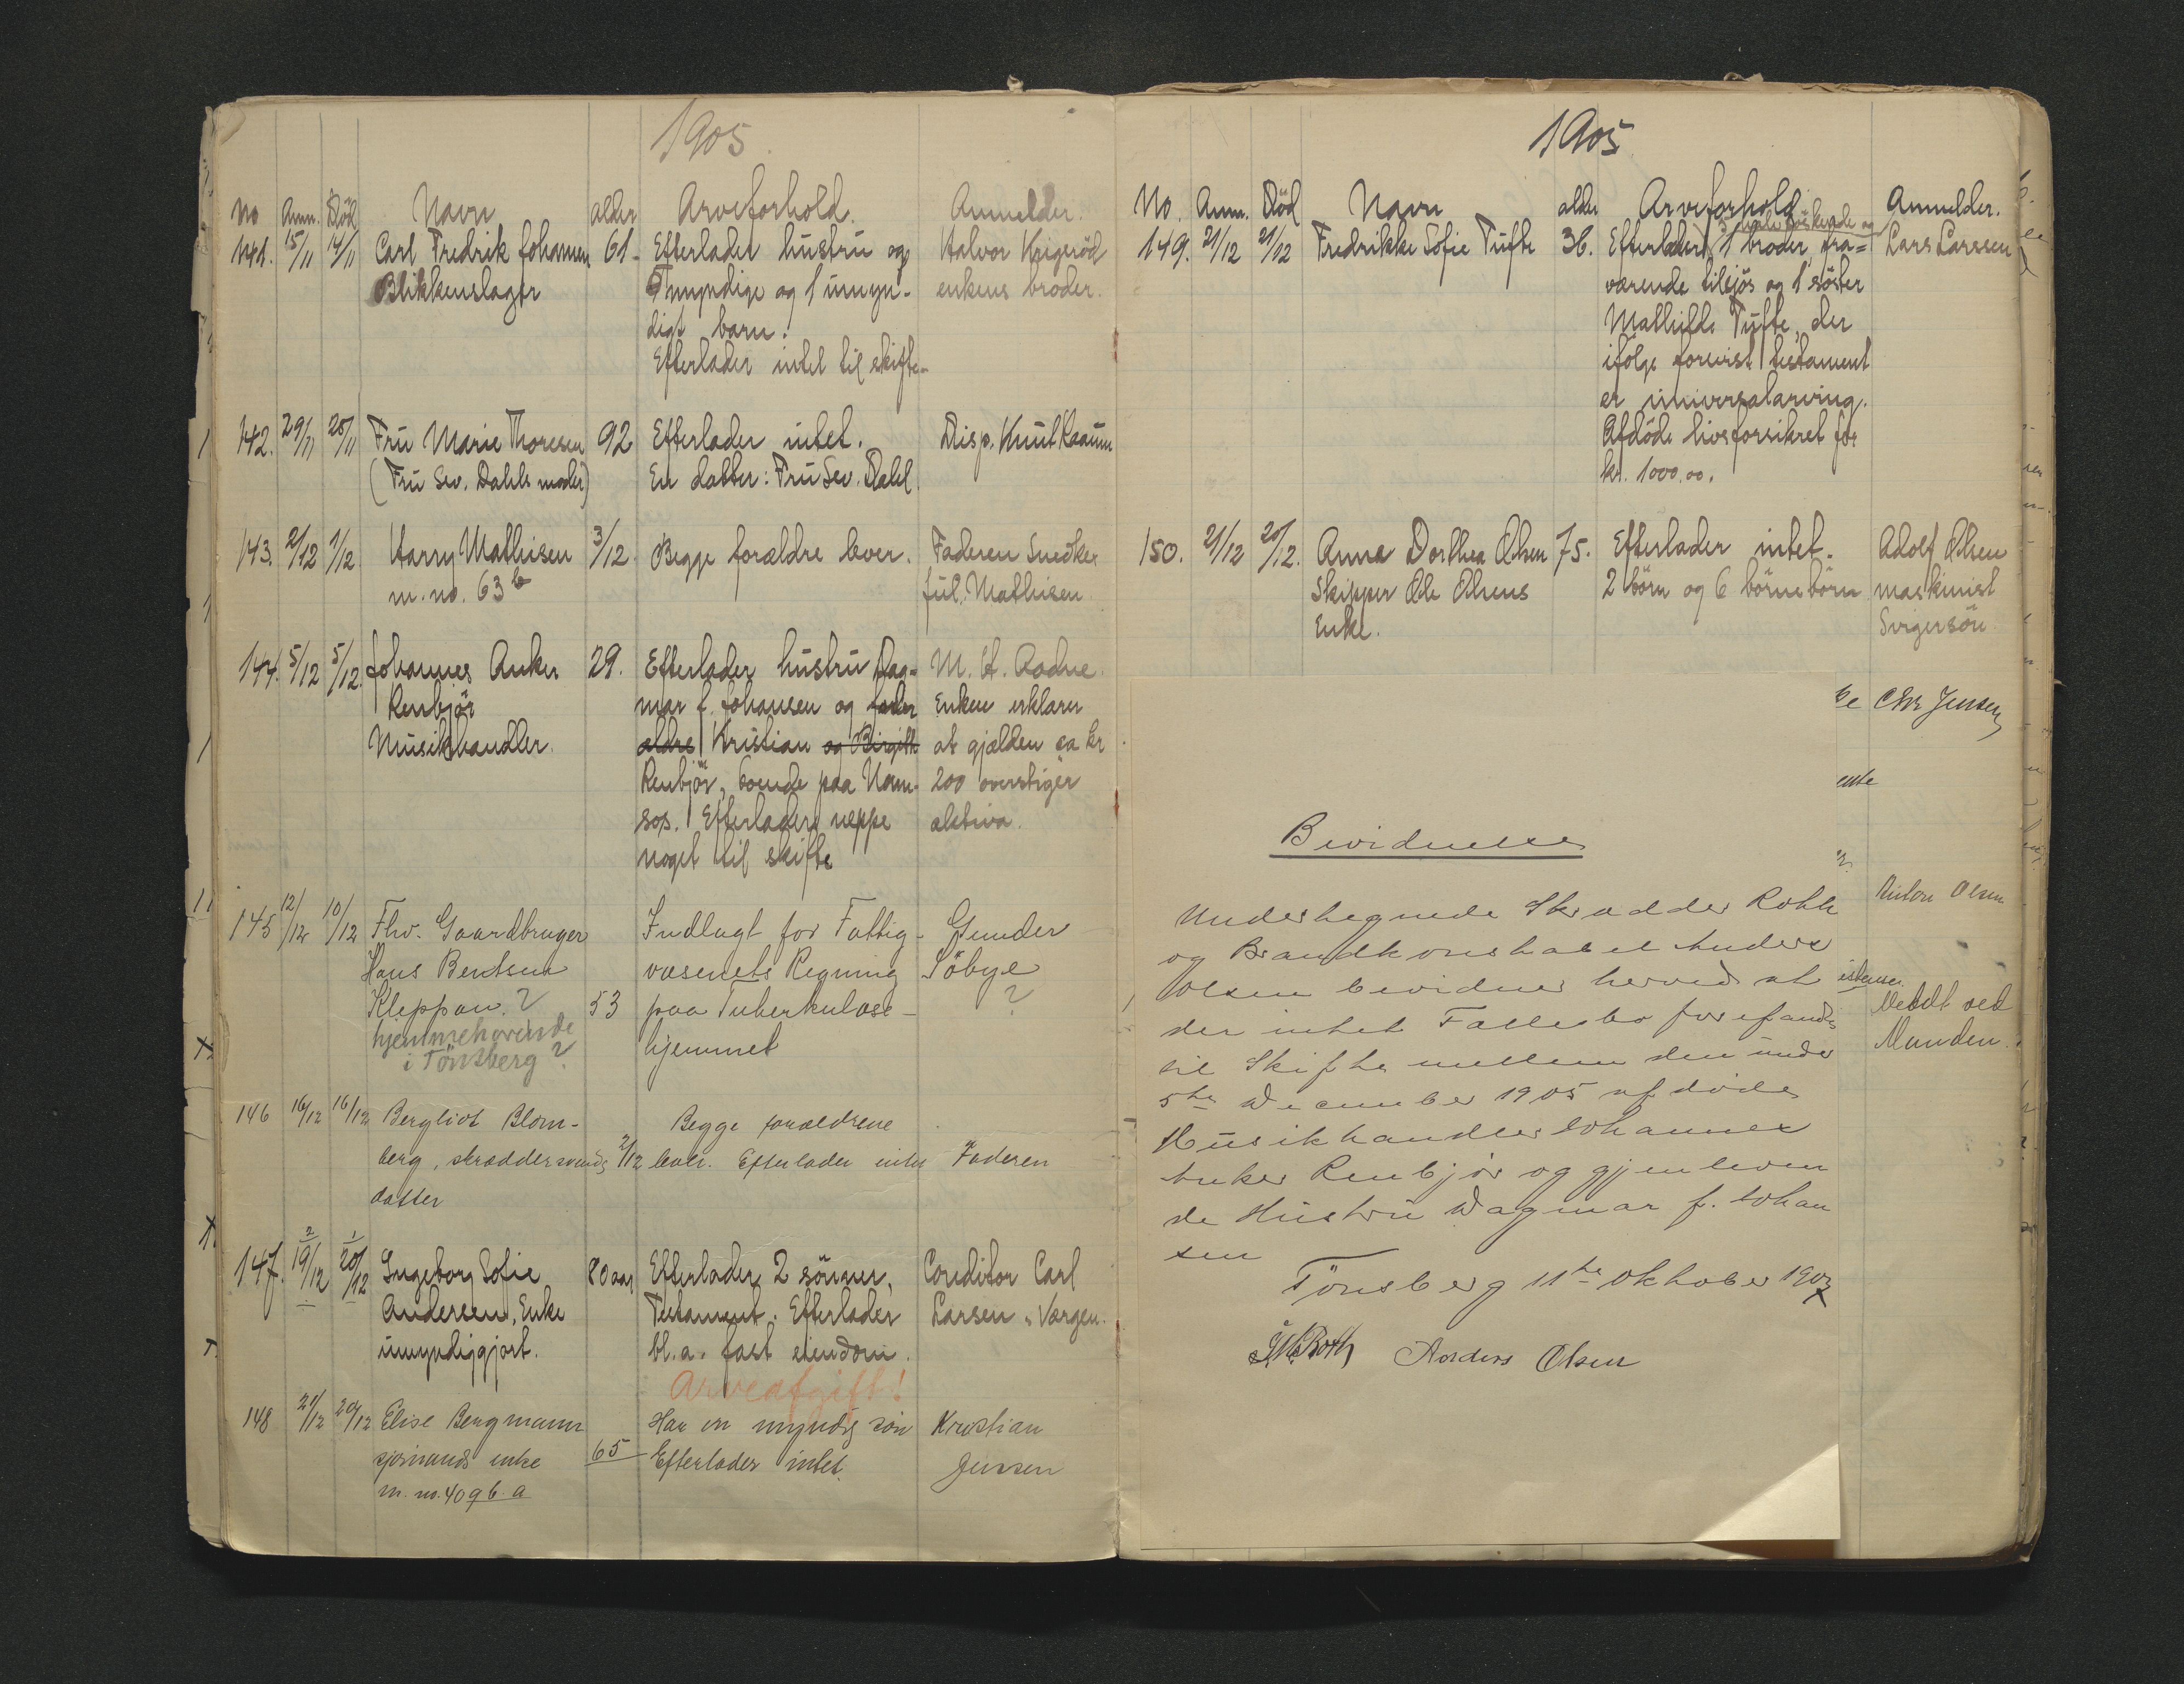 1905.
No Anm. Död Navn alder Arveforhold. Anmelder.
141. 15/11 14/11 Carl Fredrik Johansen 61 - Efterlader hustru og Halvor
Blikkenslager 5 myndige og 1 umyn- enkens broder.
digt barn.
Efterlader intet til skifte-
142. 29/11 28/11 Fru Marie Thoresen 92 Efterlader intet. Disp. Knut Kaaum
(Fru Sev. Dahls moder) En datter: Fru Sev. Dahl.
143. 2/12 1/12 Harry Mathisen 3/12. Begge forældre lever. Faderen Snedker
m. no. 63 b Jul. Mathisen.
144. 5/12 5/12. Johannes Anker 29. Efterlader hustru Dag- M. H. Aadne.
Renbjör mar f. Johansen og Enken erklærer
Musikhandler. Kristian og Birgitte at gjælden ca kr
Renbjör, boende paa Nam- 200 overstiger
sos. Efterlader neppe aktiva.
noget til skifte
145 12/12 10/12 Fhv. Gaardbruger Indlagt for Fattig- Gunder
Hans Bentsen væsenets Regning Söbye
Kleppan? 53 paa Tuberkulose- ?
hjemmehörende hjemmet
i Tönsberg?
146 16/12 16/12 Bergliot Blom- Begge forældrene
berg, skræddersvends 2/12 lever. Efterlader intet Faderen
datter
147. 19/12 20/12 Ingeborg Sofie 80 aar Efterlader 2 sönner, Conditor Carl
Andersen, Enke Testament. Efterlader Larsen, Værgen.
umyndiggjort. bl. a. fast eiendom.
Arveafgift!
148 21/12 20/12 Elise Bergmann Har en myndig sön Kristian
sjömands enke 65 Efterlader intet. Jensen
m. no. 409 b. a
1905
No. Anm. Död Navn alder Arveforhold. Anmelder.
halvsöskende og
149. 21/12 21/12 Fredrikke Sofie Tufte 36. Efterlader 1 broder, fra- Lars Larssen
værende tilsjös og 1 söster
Mathilde Tufte, der
ifölge forevist testament
er universalarving.
Afdöde livsforsikret for
kr. 1000.00.
150. 21/12 20/12. Anna Dorthea Olsen 75. Efterlader intet. Adolf Olsen
Skipper Ole Olsens 2 börn og 6 börnebörn maskinist
Enke.
Chr Jensen
Anton Olsen
Meldt ved
Manden.
Bevidnelse
Undertegnede Skrædder Roth
og Brandkonstabel Anders
Olsen bevidner herved at
der intet Fællesbo forefandes
til Skifte mellem den under
5te December 1905 afdöde
Musikhandler Johannes
Anker Renbjör og gjenleven
de Hustru Dagmar f. Johan
sen
Tönsberg 11te Oktober 1907
Roth Anders Olsen